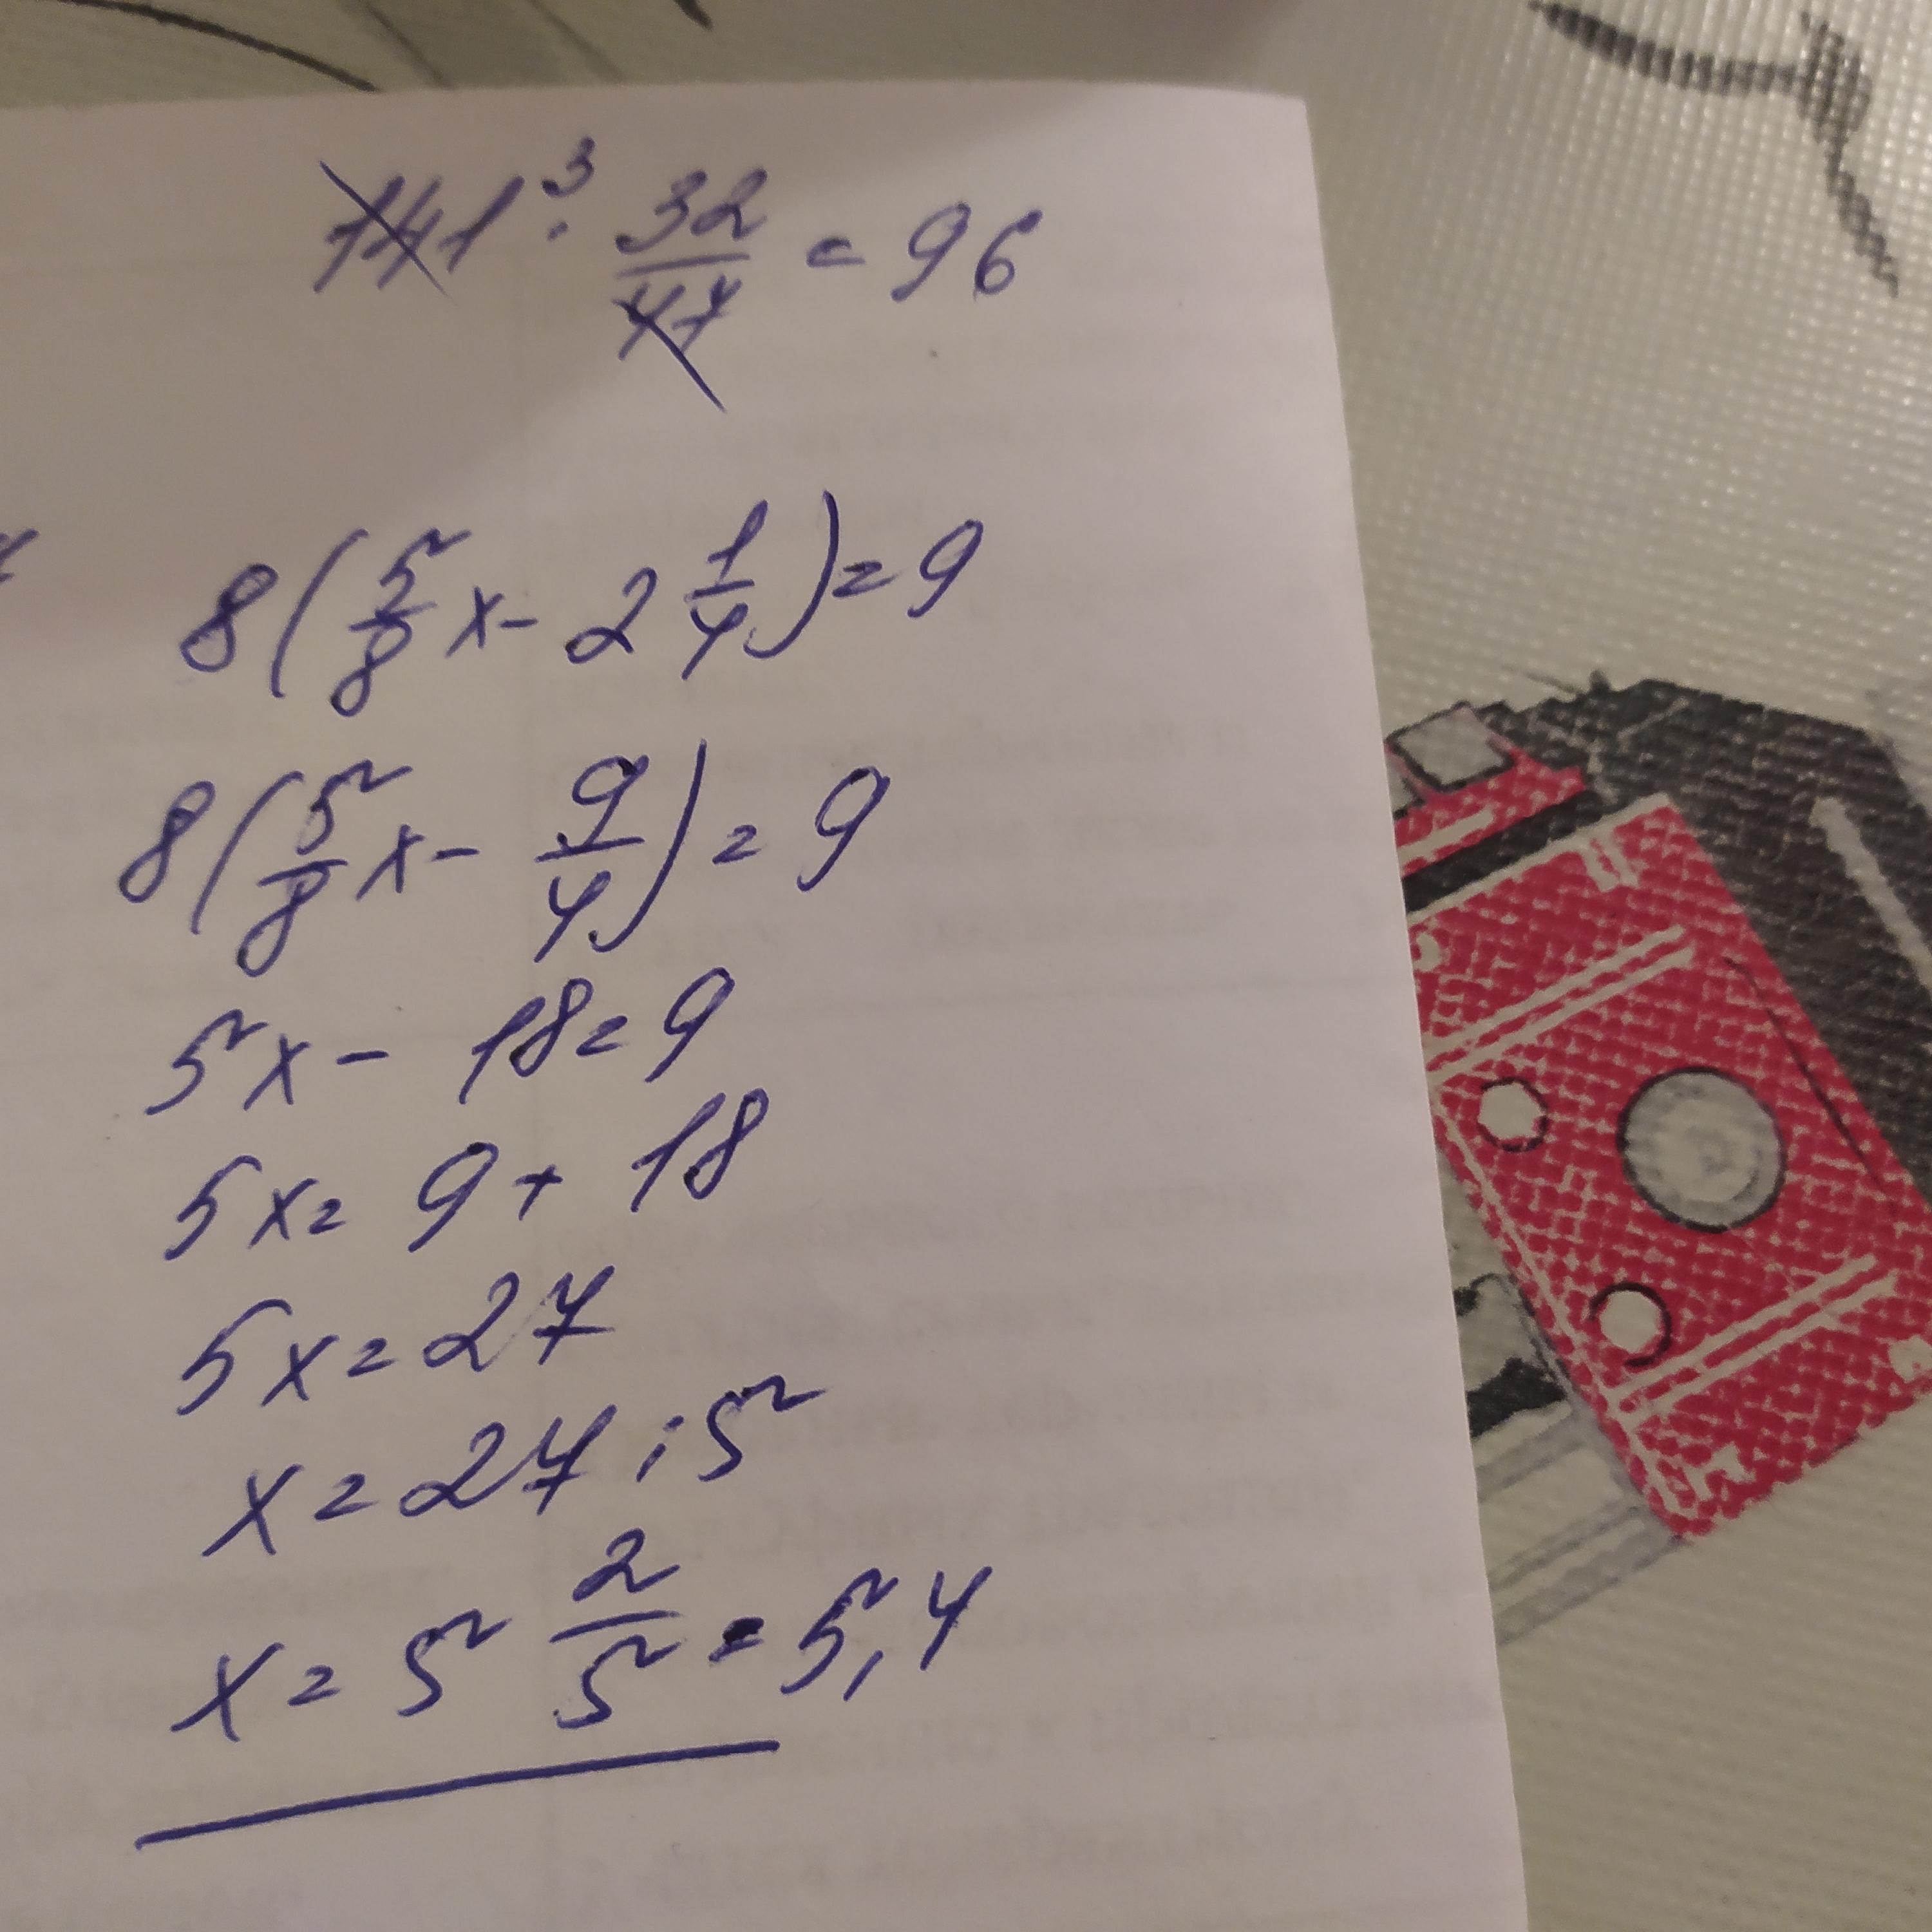 141³ · 32/47 = 96
8(5/8 x - 2 1/4) = 9
8(5/8 x - 9/4) = 9
5x - 18 = 9
5x = 9 + 18
5x = 27
x = 27 : 5
x = 5 2/5 = 5,4